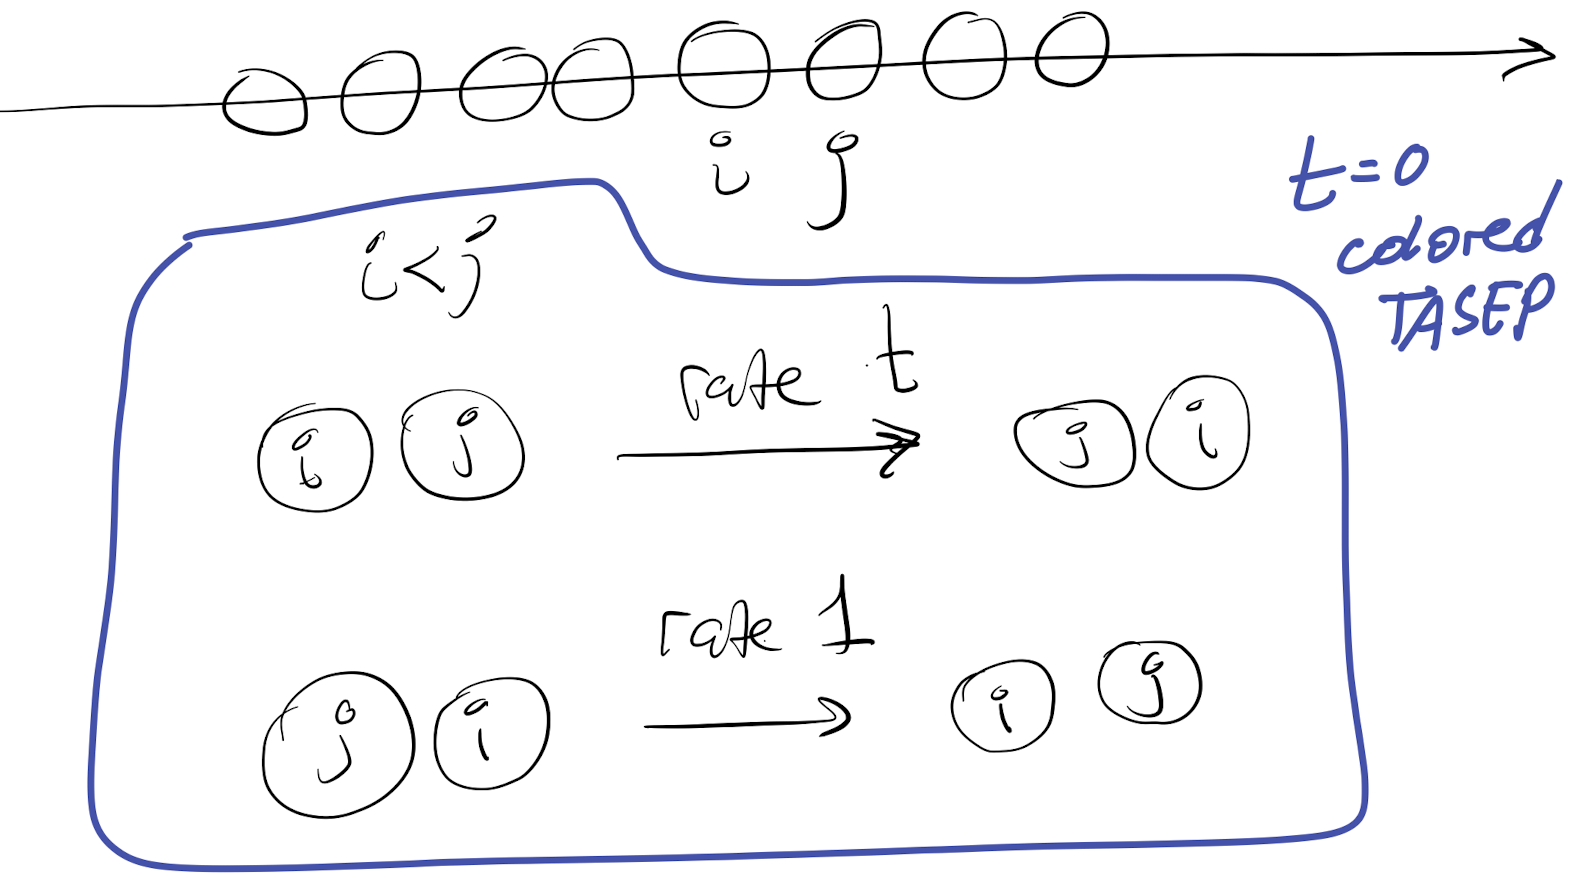 i j
t=0
colored
TASEP
i<j
i j rate t j i
j i rate 1 i j